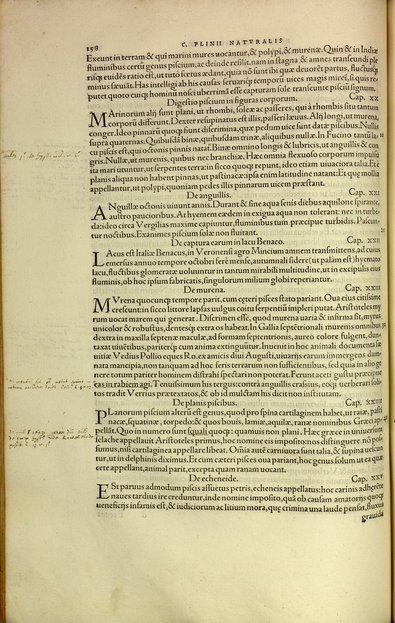 158
C. PLINII NATVRALIS
Exeunt in terram & qui marini mures uocantur, & polypi, & murenæ. Quin & in Indiæ
fluminibus certũ genus piscium, ac deinde resilit. nam in stagna & amnes transeundi ple
risq; euidẽs ratio est, ut tuto fœtus ædant, quia nõ sunt ibi quæ deuorẽt partus, fluctusq;
minus sæuiãt. Has intelligi ab his causas seruariq; temporũ uices magis mirẽt, si quis re-
putet quoto cuiq; hominũ nosci uberrimã esse capturam sole transeunte piscium signum.
Digestio piscium in figuras corporum. Cap. XX
MArinorum alij sunt plani, ut rhombi, soleæ ac passeres, qui à rhombis situ tantum
corporũ differunt. Dexter resupinatus est illis, passeri læuus. Alij longi, ut murena,
conger. Ideo pinnarũ quoq; fiunt discrimina, quæ pedum uice sunt datæ piscibus. Nullis
supra quaternas. Quibusdã binæ, quibusdam trinæ, aliquibus nullæ. In Fucino tantũ la-
cu piscis est, qui octonis pinnis natat. Binæ omnino longis & lubricis, ut anguillis & con
gris. Nullæ, ut murenis, quibus nec branchiæ. Hæc omnia flexuoso corporum impulsu
ita mari utuntur, ut serpentes terra. in sicco quoq; repunt, ideo etiam uiuaciora talia. Et è
planis aliqua non habent pinnas, ut pastinacæ: ipsa enim latitudine natant: Et quæ mollia
appellantur, ut polypi, quoniam pedes illis pinnarum uicem præstant.
De anguillis. Cap. XXI
ANguillæ octonis uiuunt annis. Durant & sine aqua senis diebus aquilone spirante,
austro paucioribus. At hyemem eædem in exigua aqua non tolerant: nec in turbi-
da: ideo circa Vergilias maxime capiuntur, fluminibus tum præcipue turbidis. Pascun-
tur noctibus. Exanimes piscium solæ non fluitant.
De captura earum in lacu Benaco. Cap. XXII
LAcus est Italiæ Benacus, in Veronensi agro Mincium amnem transmittens, ad cuius
emersus annuo tempore octobri ferè mense, autumnali sidere (ut palàm est) hyemato
lacu, fluctibus glomeratæ uoluuntur in tantum mirabili multitudine, ut in excipulis eius
fluminis, ob hoc ipsum fabricatis, singulorum milium globi reperiantur.
De murena. Cap. XXIII
MVrena quocunq; tempore parit, cum cæteri pisces stato pariant. Oua eius citissime
crescunt. in sicco litore lapsas uulgus coitu serpentiũ impleri putat. Aristoteles my
rum uocat marem qui generat. Discrimen esse, quod murena uaria & infirma sit, myrus
unicolor & robustus, dentesq; extra os habeat. In Gallia septẽtrionali murenis omnibus
dextra in maxilla septenæ maculæ, ad formam septentrionis, aureo colore fulgent, dun-
taxat uiuentibus, pariterq; cum anima extinguũtur. Inuenit in hoc animali documenta sæ
uitiæ Vedius Pollio eques Ro. ex amicis diui Augusti, uiuarijs earum immergens dam-
nata mancipia, non tanquam ad hoc feris terrarum non sufficientibus, sed quia in alio ge
nere totum pariter hominem distrahi spectari non poterat. Ferunt aceti gustu præcipue
eas in rabiem agi. Tenuissimum his tergus: contrà anguillis crassius, eoq; uerberari soli-
tos tradit Verrius prætextatos, & ob id mulctam his dici non institutam.
De planis piscibus. Cap. XXIIII
PLanorum piscium alterũ est genus, quod pro spina cartilaginem habet, ut raiæ, pasti
nacæ, squatinæ, torpedo: & quos bouis, lamiæ, aquilæ, ranæ nominibus Græci ap-
pellãt. Quo in numero sunt squali quoq; quamuis non plani. Hæc græcè in uniuersum
selache appellauit Aristoteles primus, hoc nomine eis imposito: nos distinguere nõ pos-
sumus, nisi cartilaginea appellare libeat. Omnia autẽ carniuora sunt talia, & supina uescun
tur, ut in delphinis diximus. Et cum cæteri pisces oua pariant, hoc genus solum ut ea quæ
cete appellant, animal parit, excepta quam ranam uocant.
De echeneide. Cap. XXV
ESt paruus admodum piscis assuetus petris, echeneis appellatus: hoc carinis adhęrẽte
naues tardius ire creduntur, inde nomine imposito, quã ob causam amatorijs quoq;
ueneficijs infamis est, & iudiciorum ac litium mora, quę crimina una laude pensat, fluxus
grauida